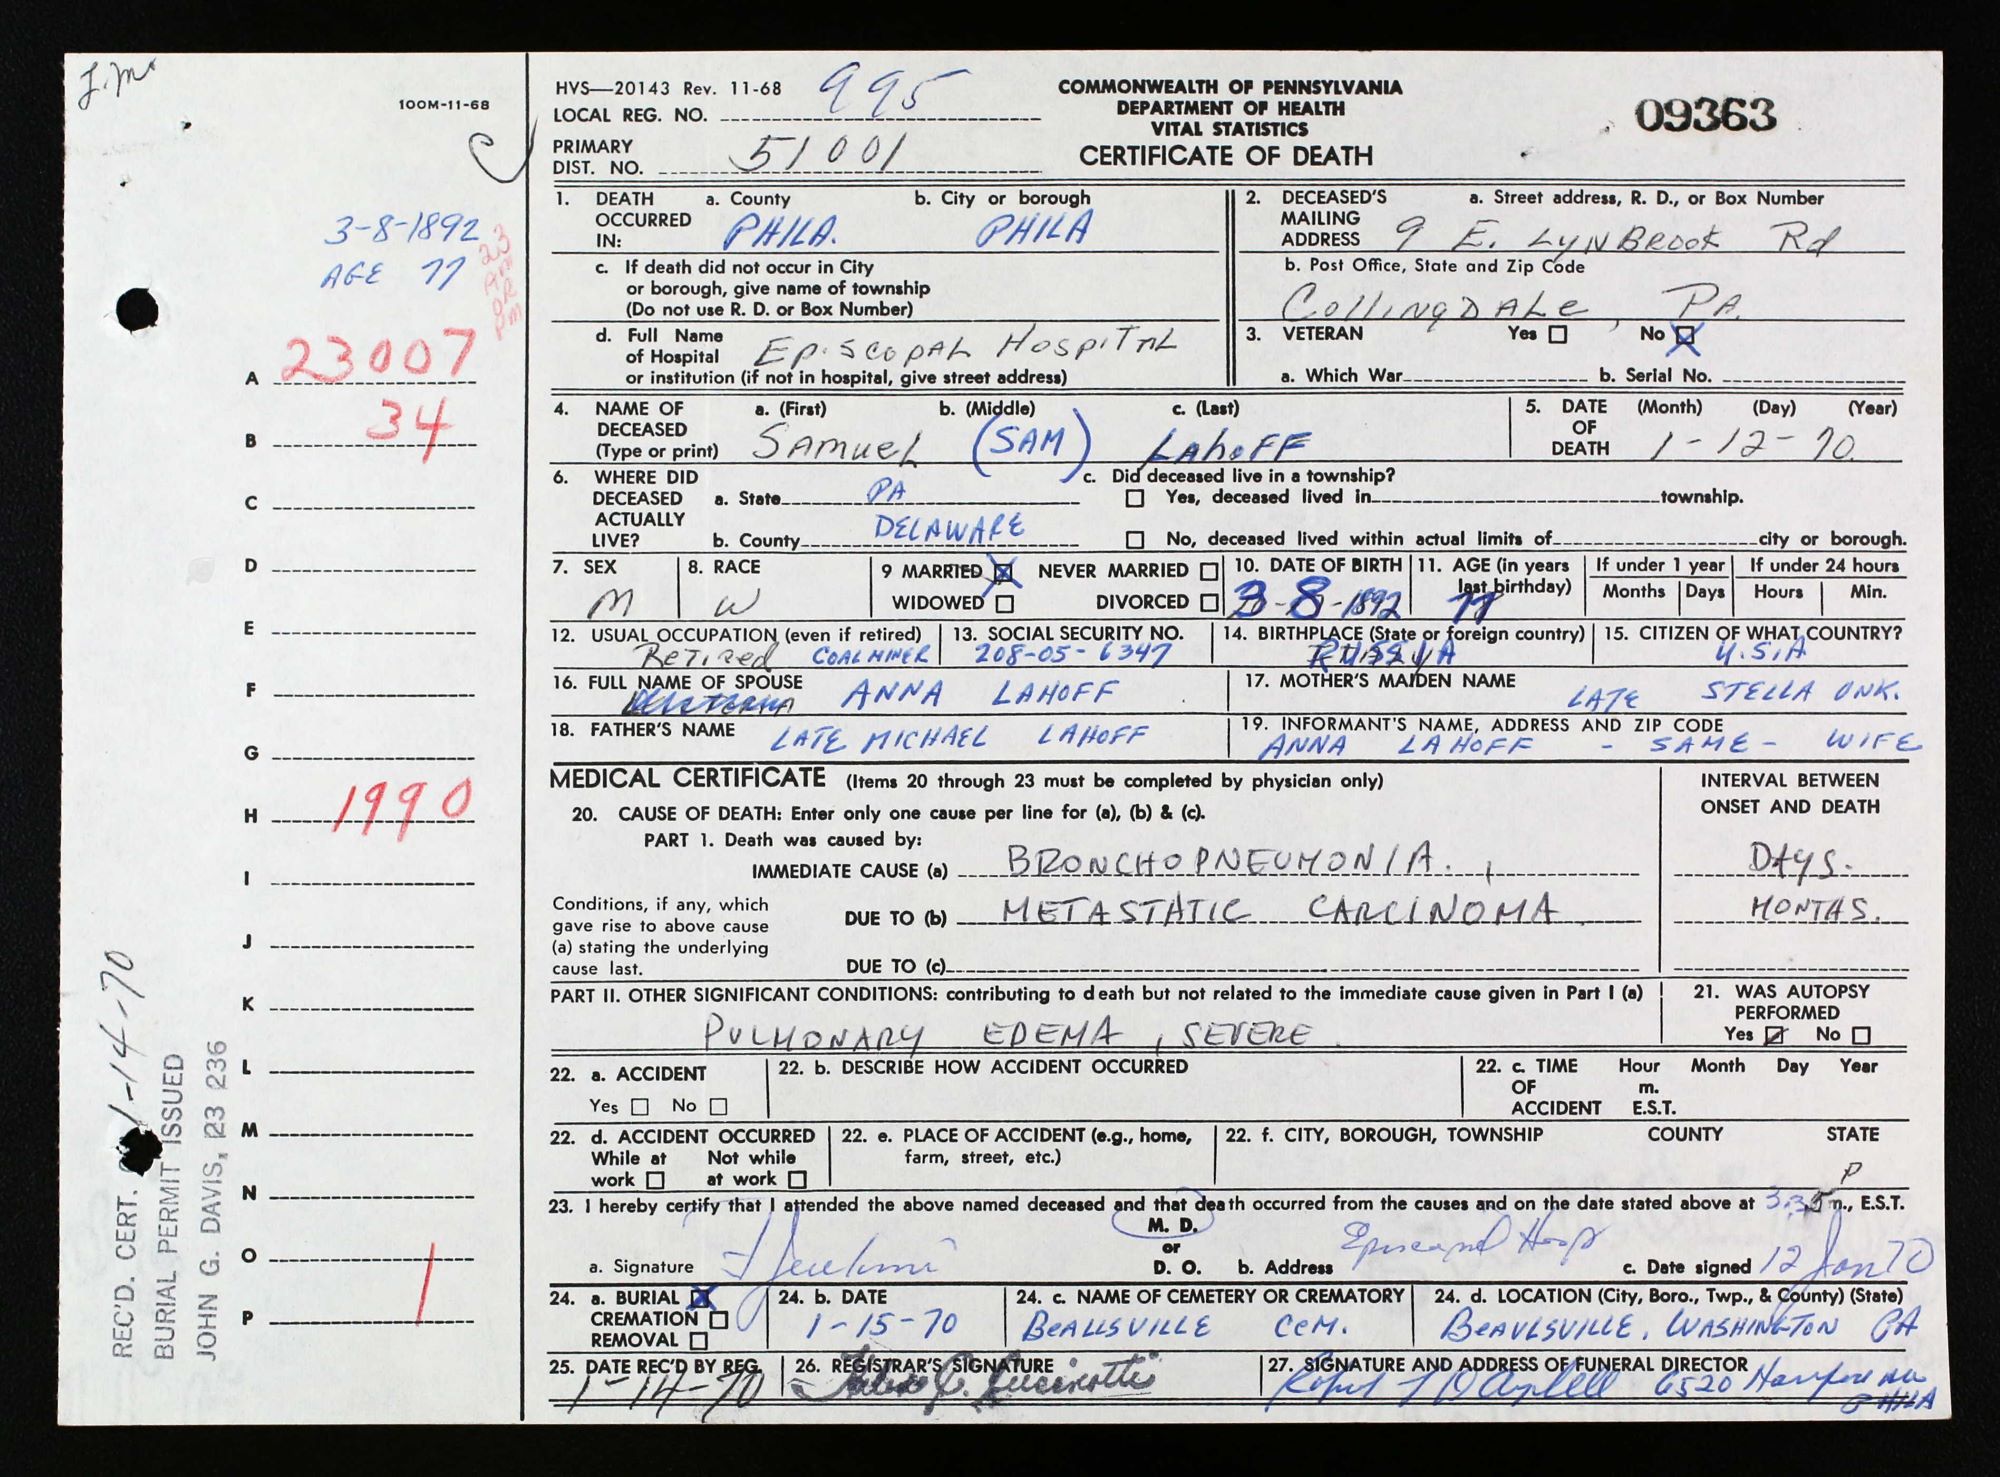 J.M.
100M-11-68
3-8-1892
AGE 77
23
AM
OR
PM
A 23007
B 34
C
D
E
F
G
H 1990
I
J
K
L
M
N
O
P 1
REC'D. CERT. 1-14-70
BURIAL PERMIT ISSUED
JOHN G. DAVIS, 23 236
HVS—20143 Rev. 11-68
LOCAL REG. NO. 995
PRIMARY
DIST. NO. 51001
COMMONWEALTH OF PENNSYLVANIA
DEPARTMENT OF HEALTH
VITAL STATISTICS
CERTIFICATE OF DEATH
09363
1. DEATH OCCURRED IN: a. County b. City or borough
PHILA. PHILA
c. If death did not occur in City
or borough, give name of township
(Do not use R. D. or Box Number)
d. Full Name
of Hospital EPISCOPAL HOSPITAL
or institution (if not in hospital, give street address)
2. DECEASED'S MAILING ADDRESS a. Street address, R. D., or Box Number
9 E. LYNBROOK Rd
b. Post Office, State and Zip Code
COLLINGDALE, PA.
3. VETERAN Yes No
a. Which War b. Serial No.
4. NAME OF DECEASED (Type or print) a. (First) b. (Middle) c. (Last)
SAMUEL (SAM) LAHOFF
5. DATE OF DEATH (Month) (Day) (Year)
1-12-70
6. WHERE DID DECEASED ACTUALLY LIVE?
a. State PA
b. County DELAWARE
c. Did deceased live in a township?
Yes, deceased lived in township.
No, deceased lived within actual limits of city or borough.
7. SEX M
8. RACE W
9 MARRIED NEVER MARRIED
WIDOWED DIVORCED
10. DATE OF BIRTH
3-8-1892
11. AGE (in years last birthday)
77
If under 1 year
Months Days
If under 24 hours
Hours Min.
12. USUAL OCCUPATION (even if retired)
Retired COAL MINER
13. SOCIAL SECURITY NO.
208-05-6347
14. BIRTHPLACE (State or foreign country)
RUSSIA
15. CITIZEN OF WHAT COUNTRY?
U.S.A
16. FULL NAME OF SPOUSE
ANNA LAHOFF
17. MOTHER'S MAIDEN NAME
LATE STELLA UNK.
18. FATHER'S NAME
LATE MICHAEL LAHOFF
19. INFORMANT'S NAME, ADDRESS AND ZIP CODE
ANNA LAHOFF - SAME - WIFE
MEDICAL CERTIFICATE (Items 20 through 23 must be completed by physician only)
INTERVAL BETWEEN
ONSET AND DEATH
20. CAUSE OF DEATH: Enter only one cause per line for (a), (b) & (c).
PART 1. Death was caused by:
IMMEDIATE CAUSE (a) BRONCHOPNEUMONIA. DAYS.
Conditions, if any, which
gave rise to above cause
(a) stating the underlying
cause last.
DUE TO (b) METASTATIC CARCINOMA MONTHS.
DUE TO (c)
PART II. OTHER SIGNIFICANT CONDITIONS: contributing to death but not related to the immediate cause given in Part I (a)
PULMONARY EDEMA, SEVERE
21. WAS AUTOPSY
PERFORMED
Yes No
22. a. ACCIDENT
Yes No
22. b. DESCRIBE HOW ACCIDENT OCCURRED
22. c. TIME OF ACCIDENT Hour Month Day Year
m.
E.S.T.
22. d. ACCIDENT OCCURRED
While at work Not while at work
22. e. PLACE OF ACCIDENT (e.g., home,
farm, street, etc.)
22. f. CITY, BOROUGH, TOWNSHIP COUNTY STATE
P
23. I hereby certify that I attended the above named deceased and that death occurred from the causes and on the date stated above at 3:35 m., E.S.T.
a. Signature
M. D.
or
D. O.
b. Address Episcopal Hosp
c. Date signed 12 Jan 70
24. a. BURIAL
CREMATION
REMOVAL
24. b. DATE
1-15-70
24. c. NAME OF CEMETERY OR CREMATORY
BEALLSVILLE CEM.
24. d. LOCATION (City, Boro., Twp., & County) (State)
BEAVLSVILLE, WASHINGTON PA
25. DATE REC'D BY REG.
1-14-70
26. REGISTRAR'S SIGNATURE
27. SIGNATURE AND ADDRESS OF FUNERAL DIRECTOR
6520
PHILA